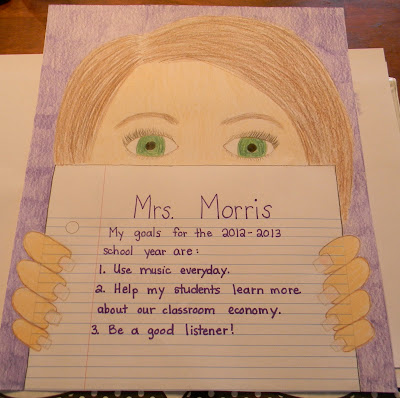 Mrs. Morris
My goals for the 2012-2013
school year are:
1. Use music everyday.
2. Help my students learn more
about our classroom economy.
3. Be a good listener!